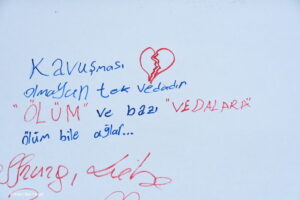 Kavuşması
olmayan tek vedadır
"ÖLÜM" ve bazı "VEDALARA"
ölüm bile ağlar...
ffnung, Liebe